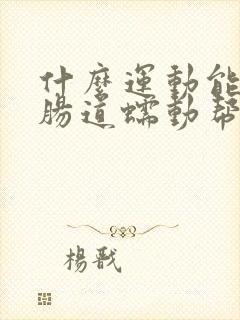 什麼運動能
腸道蠕動幫
楊戩